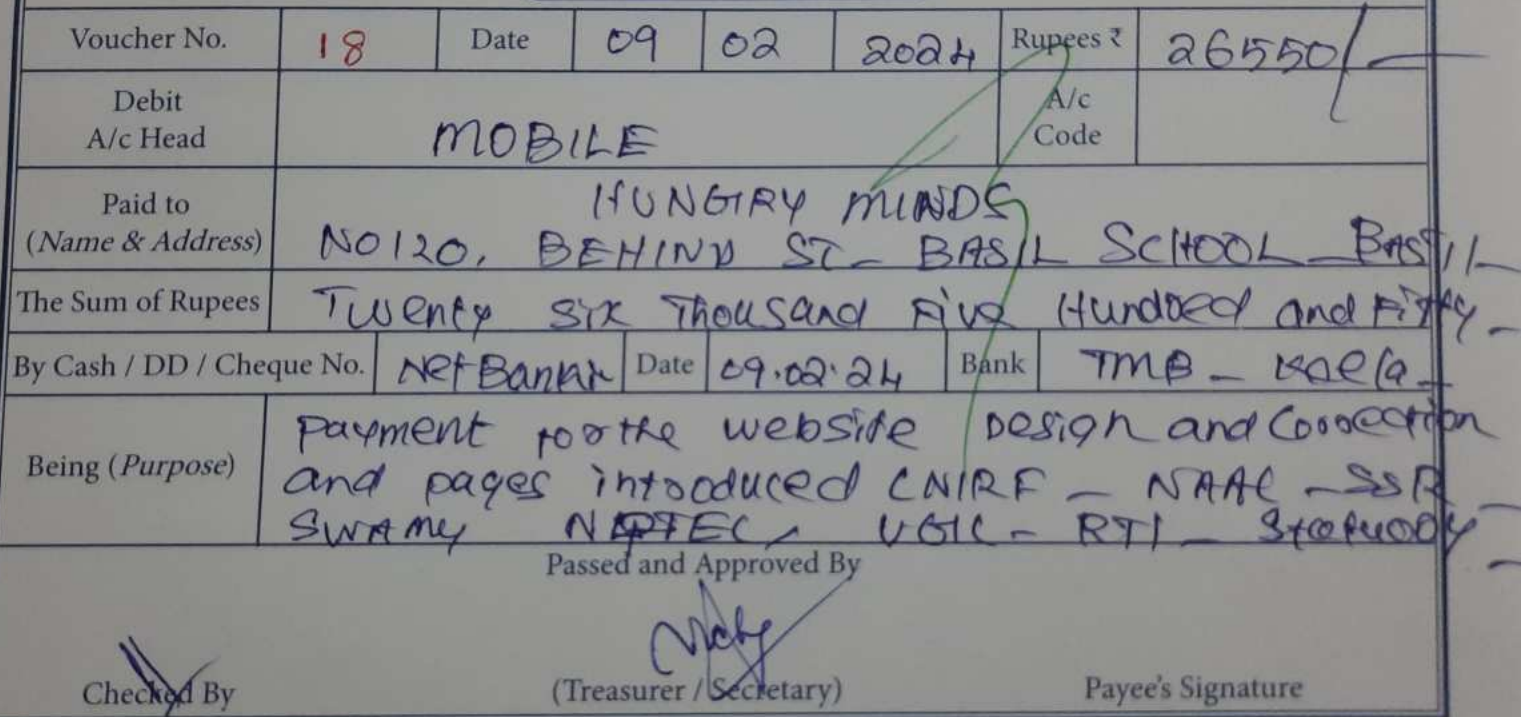 Voucher No. 18 Date 09 02 2024 Rupees ₹ 26550/-
Debit A/c Head MOBILE A/c Code
Paid to HUNGRY MINDS
(Name & Address) NO 120, BEHIND ST- BASIL SCHOOL - BASIL -
The Sum of Rupees Twenty Six Thousand Five Hundred and Fifty -
By Cash / DD / Cheque No. Net Bank Date 09.02.24 Bank TMB -
payment for the website Design and Correction
Being (Purpose) and pages introduced CNIRF - NAAC - SSR -
SWAMY UGC - RTI -
Passed and Approved By
Checked By (Treasurer / Secretary) Payee's Signature